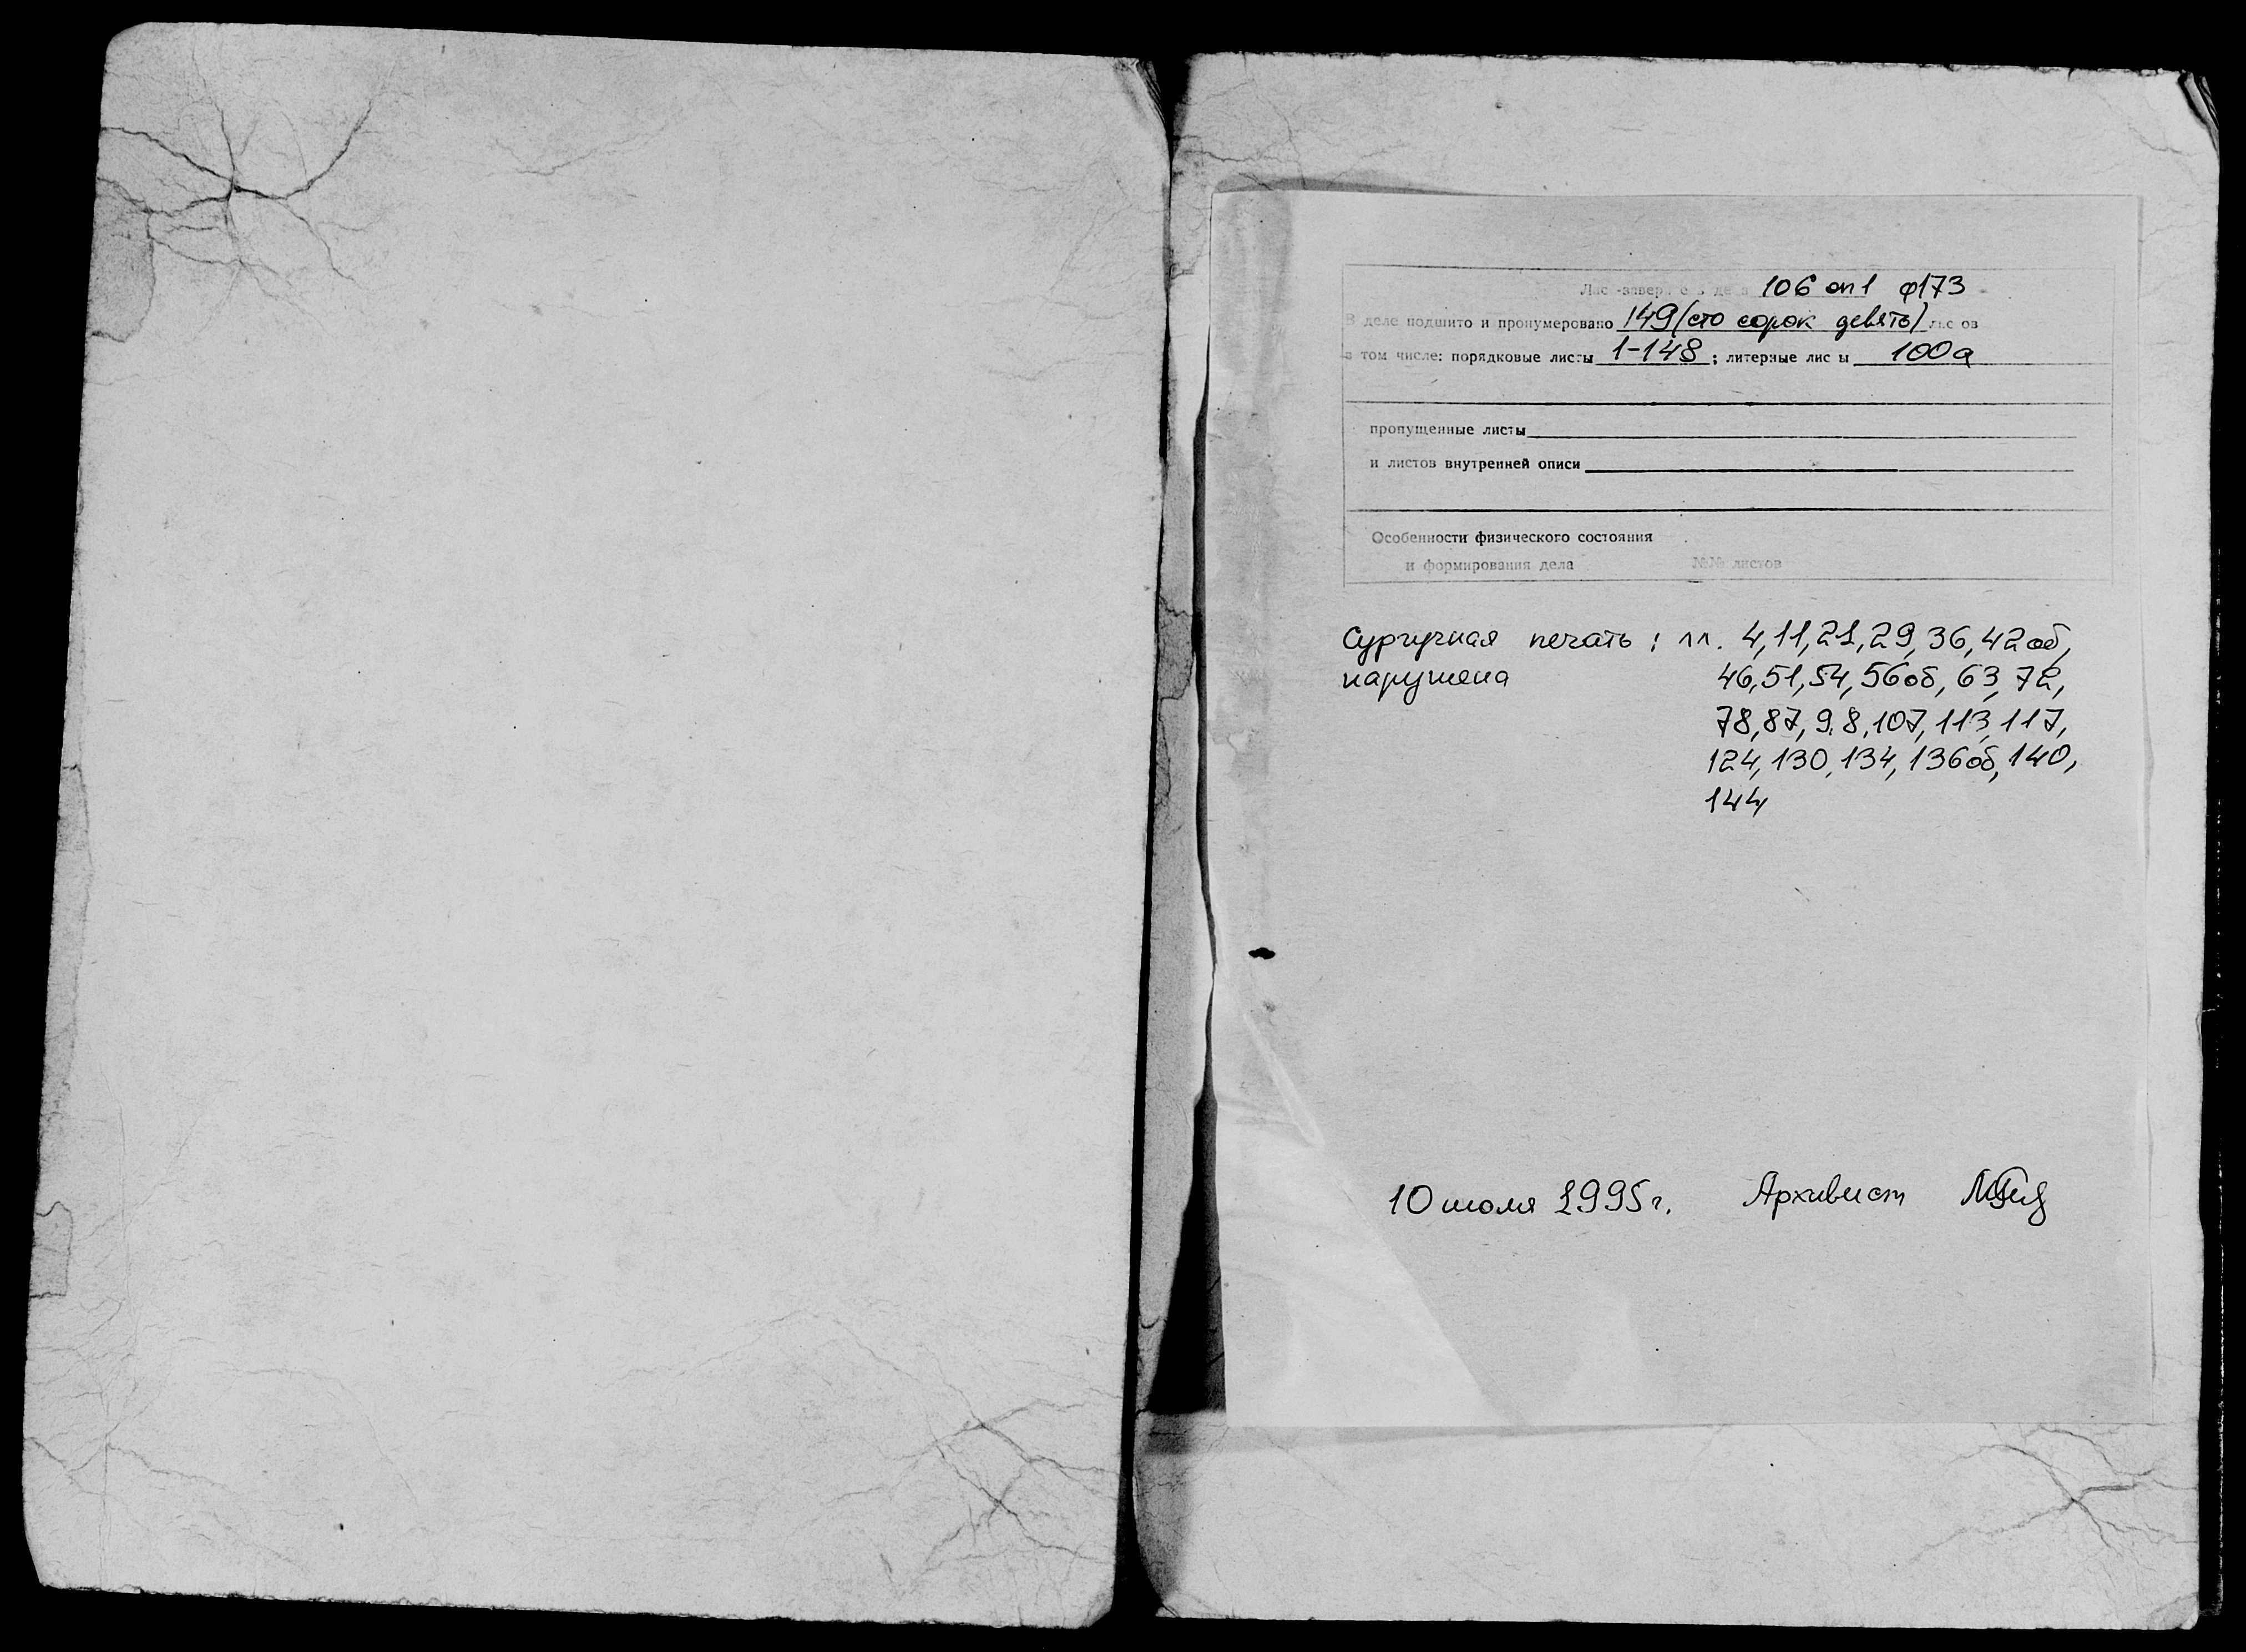 Лист-заверитель дела 106 оп1 ф173
В деле подшито и пронумеровано 149 (сто сорок девять) листов
в том числе: порядковые листы 1-148; литерные листы 100а
пропущенные листы
и листов внутренней описи
Особенности физического состояния
и формирования дела №№ листов
Сургучная печать: лл. 4, 11, 21, 29, 36, 42об,
нарушена 46, 51, 54, 56об, 63, 72,
78, 87, 98, 107, 113, 117,
124, 130, 134, 136об, 140,
144
10 июля 1995 г. Архивист